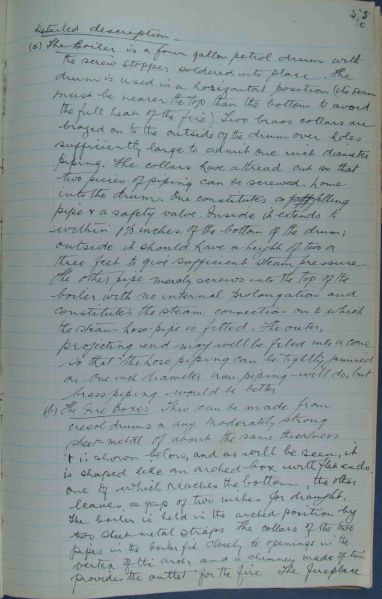 5.5
c
Detailed description.
(a) The Boiler is a four gallon petrol drum with
the screw stopper soldered into place. The
drum is used in a horizontal position (its seam
must be nearer the top than the bottom to avoid
the full heat of the fire) Two brass collars are
brazed on to the outside of the drum over holes
sufficiently large to admit one inch diameter
piping. The collars have a thread cut so that
two pieces of piping can be screwed home
into the drum. One constitutes a filling
pipe & a safety valve. Inside it extends to
within 1½ inches of the bottom of the drum;
outside it should have a height of two or
three feet to give sufficient steam pressure
The other pipe merely screws into the top of the
boiler with no internal prolongation and
constitutes the steam connection on to which
the steam hose-pipe is fitted. The outer,
projecting end may well be filed into a cone
so that the hose piping can be tightly jammed
on. One inch diameter iron piping will do, but
brass piping would be better
(b) The Fire Boxes This can be made from
cresol drums or any moderately strong
sheet metal of about the same thickness
It is shown below, and as will be seen, it
is shaped like an arched box with flat ends.
one of which reaches the bottom, the other
leaves a gap of two inches for draught.
The boiler is held in the arched position by
two sheet metal straps The collars of the two
pipes in the boiler fit closely to openings in the
vertex of the arch, and a chimney made of tins
provides the outlet for the fire The fireplace